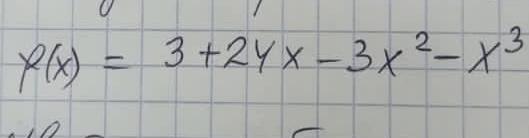 f(x) = 3 + 24x - 3x² - x³